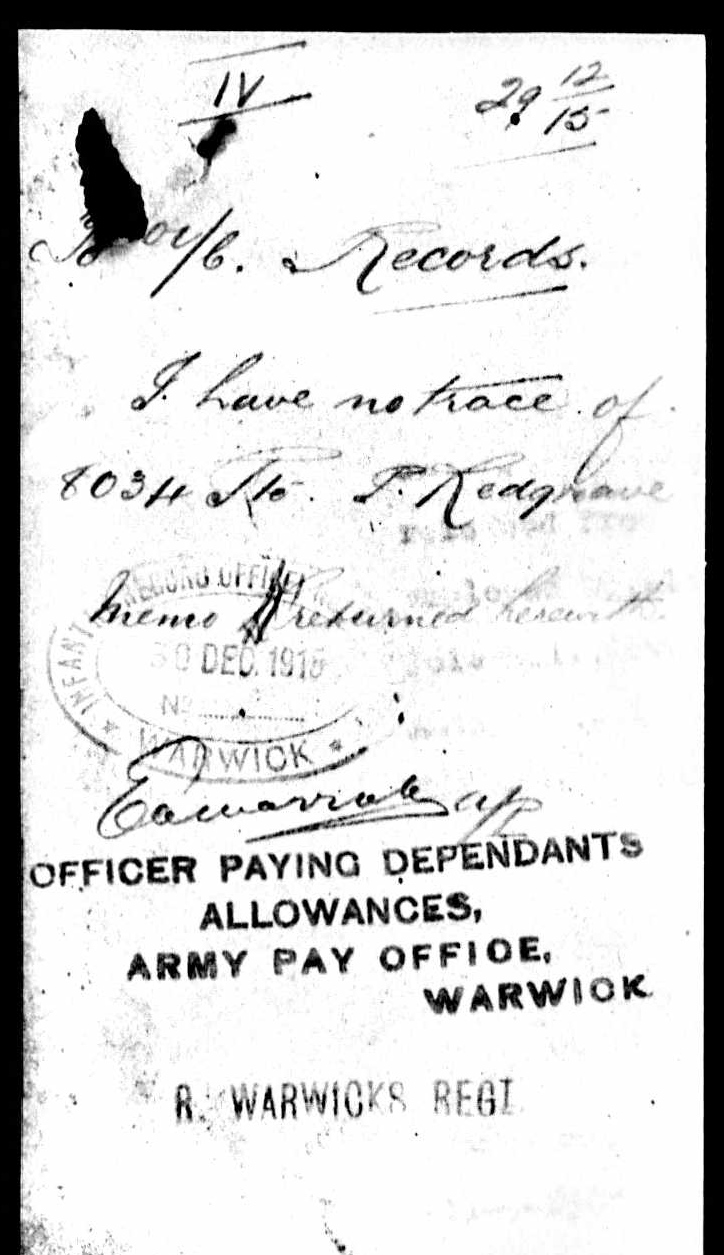 IV
29 12/15
To O i/c. Records.
I have no trace of
8034 Pte. P. Redgrave
Memo A returned herewith.
INFANTRY RECORD OFFICE
30 DEC. 1915
No
WARWICK
OFFICER PAYING DEPENDANTS
ALLOWANCES,
ARMY PAY OFFICE,
WARWICK
R. WARWICKS REGT